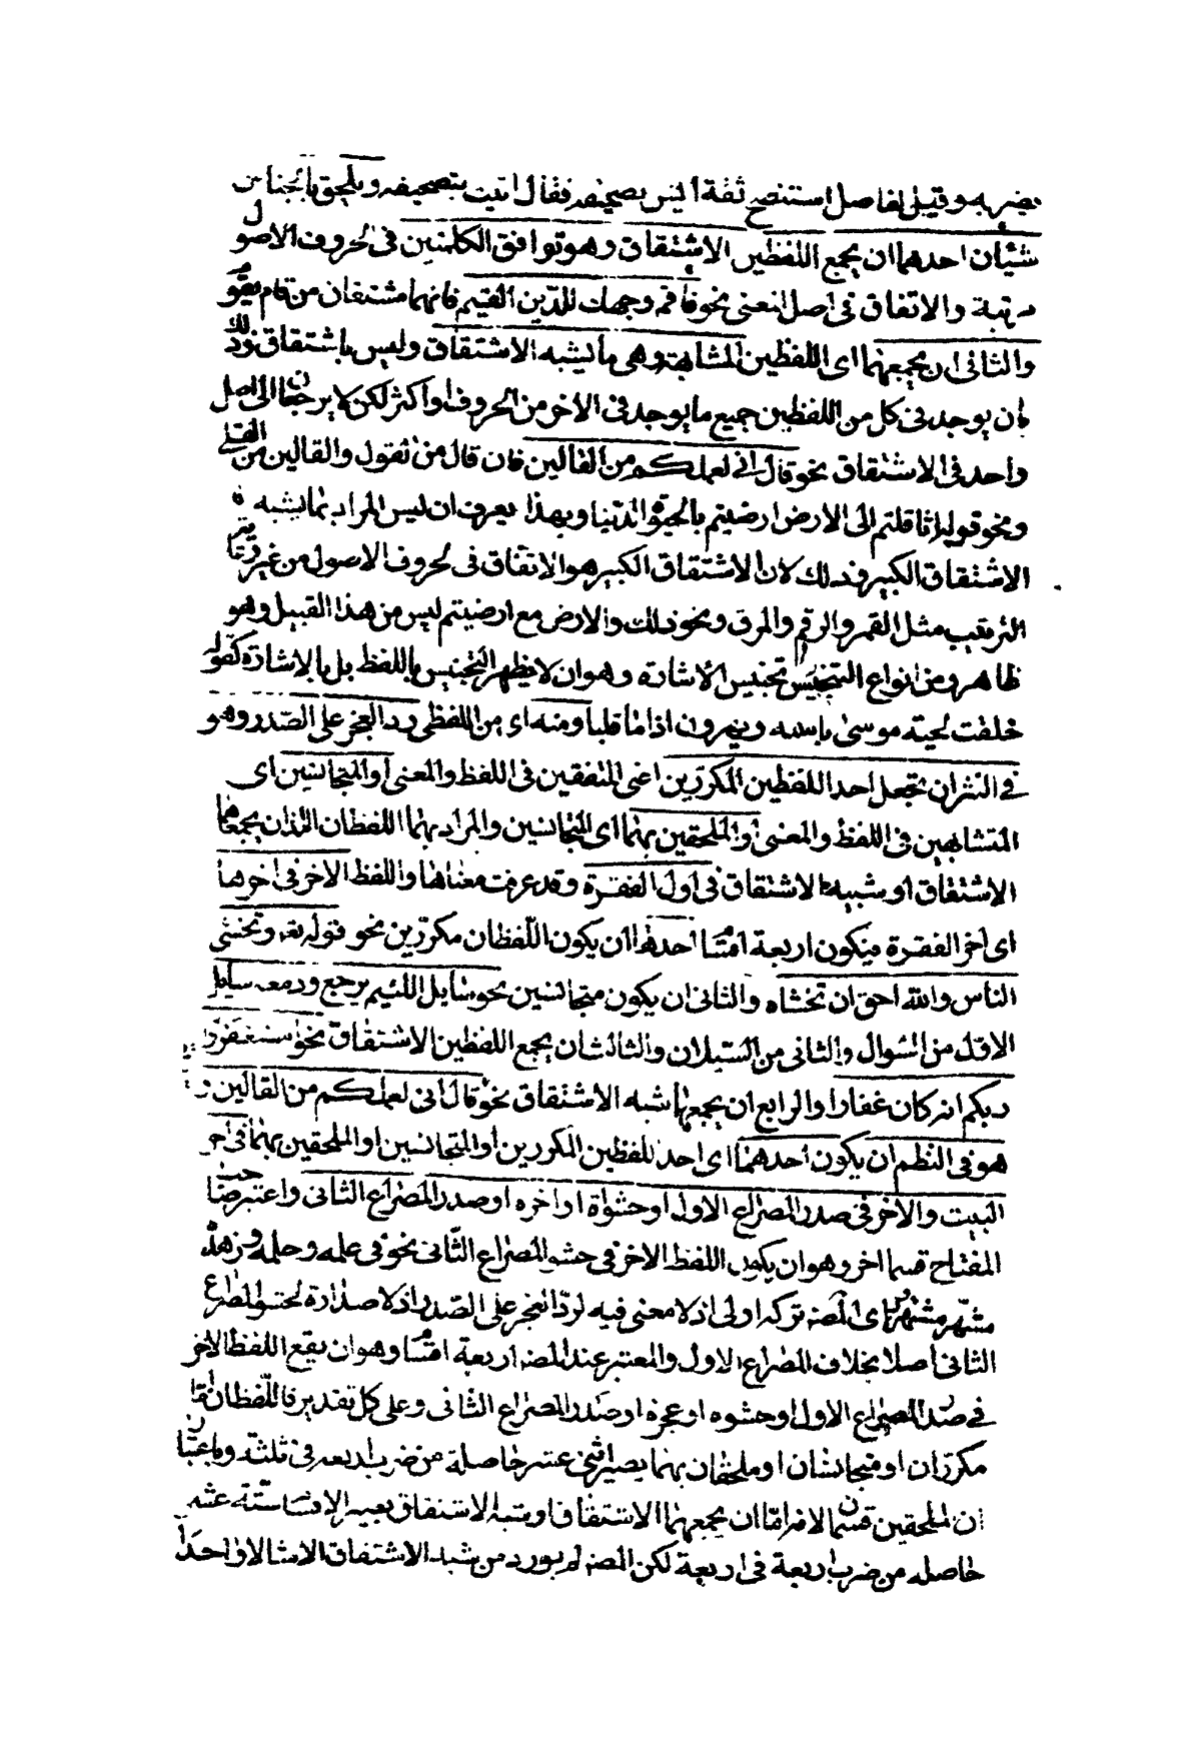 بضربه وقيل لفاضل استنصح ثقة ايش تصحيفه فقال اتيت بتصحيفه ويلحق بالجناس
شيئان احدهما ان يجمع اللفظين الاشتقاق وهو توافق الكلمتين فى الحروف الاصول
مرتبة والاتفاق فى اصل المعنى نحو فاقم وجهك للدين القيم فانهما مشتقان من قام يقوم
والثانى ان يجمعهما اى اللفظين المشابهة وهى ما يشبه الاشتقاق وليس باشتقاق وذلك
بان يوجد فى كل من اللفظين جميع ما يوجد فى الاخر من الحروف او اكثر لكن لا يرجعان الى اصل
واحد فى الاشتقاق نحو قال انى لعملكم من القالين فان قال من القول والقالين من القلى
ونحو قوله اثاقلتم الى الارض ارضيتم بالحيوة الدنيا وبهذا يعرف ان ليس المراد بما يشبه
الاشتقاق الكبير وذلك لان الاشتقاق الكبير هو الاتفاق فى الحروف الاصول من غير رعاية
الترتيب مثل القمر والرقم والمرق ونحو ذلك والارض مع ارضيتم ليس من هذا القبيل وهو
ظاهر ومن انواع التجنيس تجنيس الاشارة وهو ان لا يظهر التجنيس باللفظ بل بالاشارة كقوله
حلقت لحية موسى باسمه وبهرون اذا ما قلبا ومنه اى من اللفظى رد العجز على الصدر وهو
فى النثر ان يجعل احد اللفظين المكررين اعنى المتفقين فى اللفظ والمعنى او المتجانسين اى
المتشابهين فى اللفظ والمعنى او الملحقين بهما اى المتجانسين والمراد بهما اللفظان اللذان يجمعهما
الاشتقاق او شبيه الاشتقاق فى اول الفقرة وقد عرفت معناها واللفظ الاخر فى اخرها
اى اخر الفقرة فيكون اربعة اقسام احدها ان يكون اللفظان مكررين نحو قوله تع وتخشى
الناس والله احق ان تخشاه والثانى ان يكون متجانسين نحو سايل اللئيم يرجع ودمعه سايل
الاول من السؤال والثانى من السيلان والثالث ان يجمع اللفظين الاشتقاق نحو استغفروا
ربكم انه كان غفارا والرابع ان يجمعهما شبه الاشتقاق نحو قال انى لعملكم من القالين و
هو فى النظم ان يكون احدهما اى احد اللفظين المكررين او المتجانسين او الملحقين بهما فى اخر
البيت والاخر فى صدر المصراع الاول او حشوه او اخره او صدر المصراع الثانى واعتبر صاحب
المفتاح قسما اخر وهو ان يكون اللفظ الاخر فى حشو المصراع الثانى نحو فى علمه وحلمه وزهده
وعهده مشتهر مشتهر راى المصه تركه اولى اذ لا معنى فيه لرد العجز على الصدر اذ لا صدارة لحشو المصراع
الثانى اصلا بخلاف المصراع الاول والمعتبر عند المصه اربعة اقسام وهو ان يقع اللفظ الاخر
فى صدر المصراع الاول او حشوه او عجزه او صدر المصراع الثانى وعلى كل تقدير فاللفظان اما
مكرران او متجانسان او ملحقان بهما يصير اثنى عشر حاصلة من ضرب اربعة فى ثلثة وباعتبار
ان الملحقين قسمان لانه اما ان يجمعهما الاشتقاق او شبه الاشتقاق يصير الاقسام ستة عشر
حاصلة من ضرب اربعة فى اربعة لكن المصه لم يورد من شبه الاشتقاق الا مثالا واحدا